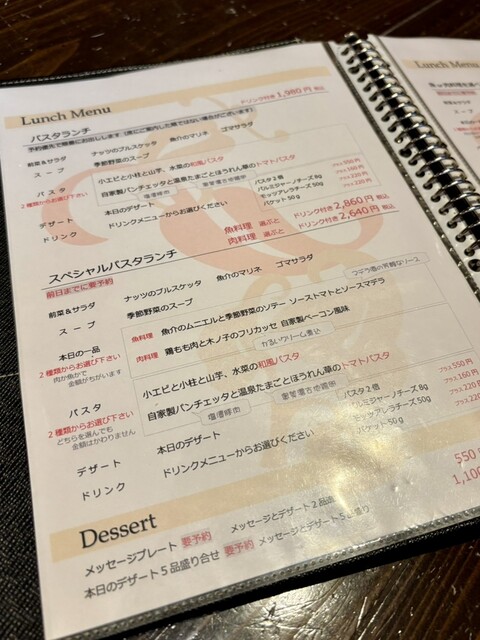 Lunch Menu
パスタランチ ドリンク付き 1,980円 税込
前菜&サラダ ナッツのブルスケッタ 魚介のマリネ ゴマサラダ
スープ 季節野菜のスープ
パスタ 小エビと小柱と山芋、水菜の和風パスタ
2種類からお選び下さい 自家製パンチェッタと温泉たまごとほうれん草のトマトパスタ
パスタ2倍
パルミジャーノチーズ8g プラス220円
モッツァレラチーズ50g プラス220円
バケット50g
デザート 本日のデザート
ドリンク ドリンクメニューからお選びください
スペシャルパスタランチ
魚料理 選ぶと ドリンク付き 2,860円 税込
肉料理 選ぶと ドリンク付き 2,640円 税込
前日までに要予約
前菜&サラダ ナッツのブルスケッタ 魚介のマリネ ゴマサラダ
スープ 季節野菜のスープ
本日の一品 魚料理 魚介のムニエルと季節野菜のソテー ソーストマトとソースマデラ
2種類からお選び下さい 肉料理 鶏もも肉と木ノ子のフリカッセ 自家製ベーコン風味
肉か魚かで
金額がちがいます
パスタ 小エビと小柱と山芋、水菜の和風パスタ
2種類からお選び下さい 自家製パンチェッタと温泉たまごとほうれん草のトマトパスタ
どちらを選んでも
金額はかわりません
パスタ2倍 プラス550円
パルミジャーノチーズ8g プラス160円
モッツァレラチーズ50g プラス220円
バケット50g プラス220
デザート 本日のデザート
ドリンク ドリンクメニューからお選びください
Dessert
メッセージプレート 要予約 メッセージとデザート2品 550
本日のデザート5品盛り合せ 要予約 メッセージとデザート5品盛り 1,100
Lunch Menu